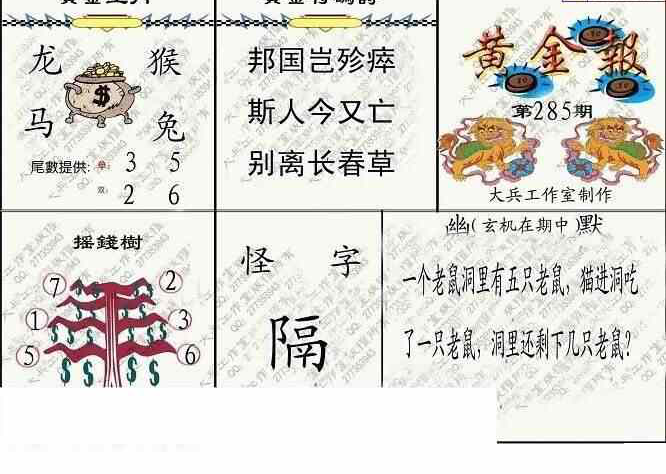 龙 猴
马 兔
尾數提供: 单: 3 5
双: 2 6
邦国岂殄瘁
斯人今又亡
别离长春草
黄金報
第285期
大兵工作室制作
摇錢樹
7 2
1 3
5 6
怪 字
隔
幽(玄机在期中)默
一个老鼠洞里有五只老鼠，猫进洞吃
了一只老鼠，洞里还剩下几只老鼠？